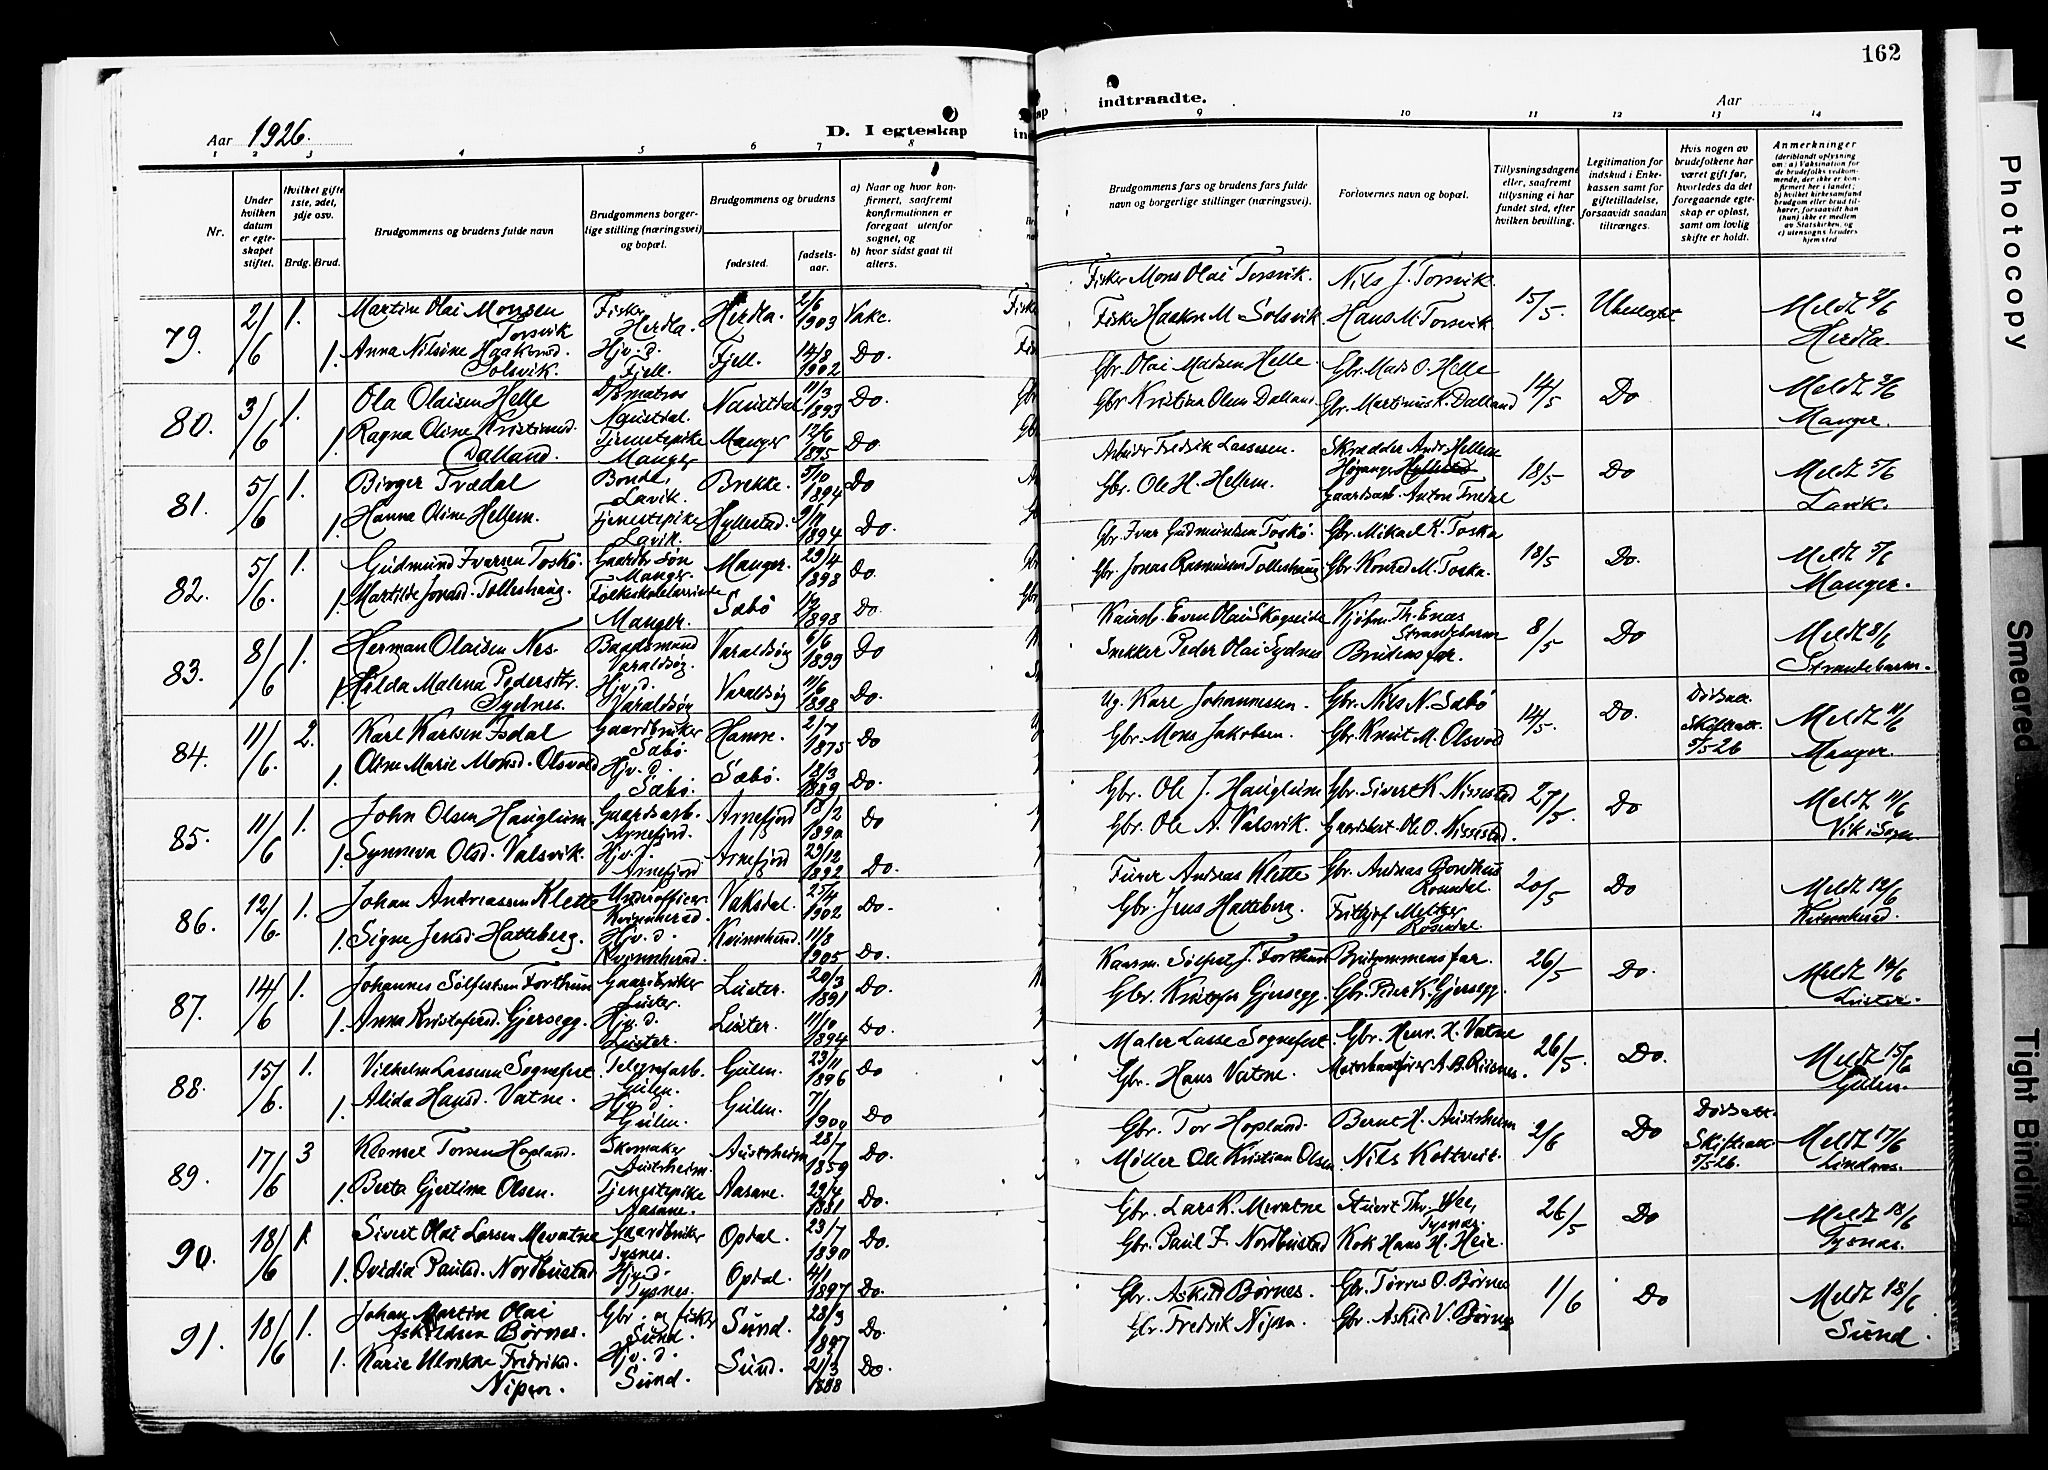 162
Aar 1926.
D. I egteskap
indtraadte.
Aar
1 2 3 4 5 6 7 8
9 10 11 12 13 14
Nr.
Under hvilken datum er egteskapet stiftet.
Hvilket gifte 1ste, 2det, 3dje osv.
Brdg. Brud.
Brudgommens og brudens fulde navn
Brudgommens borgerlige stilling (næringsvei) og bopæl.
Brudgommens og brudens
fødested.
fødselsaar.
a) Naar og hvor konfirmert, saafremt konfirmationen er foregaat utenfor sognet, og
b) hvor sidst gaat til alters.
Brudgommens fars og brudens fars fulde navn og borgerlige stillinger (næringsvei).
Forlovernes navn og bopæl.
Tillysningsdagene eller, saafremt tillysning ei har fundet sted, efter hvilken bevilling.
Legitimation for indskud i Enkekassen samt for giftetilladelse, forsaavidt saadan tiltrænges.
Hvis nogen av brudefolkene har været gift før, hvorledes da det foregaaende egteskap er opløst, samt om lovlig skifte er holdt.
Anmerkninger (deriblandt oplysning om: a) Vaksination for de brudefolks vedkommende, der ikke er konfirmert her i landet; b) hvilket kirkesamfund brudgom eller brud tilhører, forsaavidt han (hun) ikke er medlem av Statskirken, og c) utensogns bruders hjemsted
79. 2/6 1. Martin Olai Monsen Torsvik Fisker Herdla. Herdla. 2/6 1903 Fisker Mons Olai Torsvik. Nils J. Torsvik 15/5. Meldt 2/6 Herdla.
1. Anna Nilsine Haakonsd. Solsvik. Hjv. d. Fjell. Fjell. 14/8 1902 Do. Fisker Haakon M Solsvik Hans M. Torsvik
80. 3/6 1. Ola Olaisen Helle Naustdal. Naustdal 11/3 1893 Do. Gbr. Olai Madsen Helle Gbr. Mads O. Helle 14/5 Do Meldt 3/6 Manger.
1. Ragna Oline Kristiansd. Dalland. Tjenestepike Manger Manger 12/6 1895 Do Gbr Kristian Olsen Dalland Gbr. Martinus K. Dalland
81. 5/6 1. Birger Trædal Bonde, Lavik. Brekke. 5/10 1894 Do Arbeider Fredrik Larssen. Skrædder Andr Hellem 18/5 Do Meldt 5/6 Lavik.
1. Hanna Oline Hellem. Tjenestepike Lavik. Hyllestad. 1894 Do. Gbr. Ole H. Hellem. Gaardsarb. Anton Trædal
82. 5/6. 1. Gudmund Ivarsen Toskø. Gaardbr. søn Manger. Manger. 29/4 1898 Do Gbr. Ivar Gudmundsen Toskø. Gbr. Mikael K. Toska 18/5 Do. Meldt 5/6 Manger.
1. Martilde Jonasd. Tolleshaug. Manger. Sæbø 1898 Do. Gbr Jonas Rasmussen Tolleshaug Gbr. Konrad M. Toska.
83. 8/6 1. Herman Olaisen Nes. Baadsmand Varaldsøy. Varaldsøy 6/6 1899 Do Even Olai Skogseide Kjøbm. Th. Enes Strandebarm 8/5 Do Meldt 8/6 Strandebarm.
1. Hilda Malena Pedersdtr. Sydnes. Hjv. d. Varaldsøy Varaldsøy 11/6 1898 Do. Snekker Peder Olai Sydnes Brudens far.
84. 11/6. 2. Karl Karlsen Isdal Gaardbruker Sæbø. Hamre. 2/7 1875 Do Ug. Karl Johannessen. Gbr. Nils N. Sæbø 14/5. Do. Dødsatt. Skifteatt. 5/5 26 Meldt 11/6 Manger.
1. Oline Marie Monsd. Olsvold Hjv. d. Sæbø. Sæbø. 18/3 1889 Do. Gbr. Mons Jakobsen. Gbr. Knut M. Olsvold
85. 11/6 1. John Olsen Hauglum. Gaardsarb. Arnefjord. Arnefjord 18/2 1890 Do Gbr. Ole J. Hauglum Gbr. Sivert K. Nissestad 27/5. Do Meldt 11/6 Vik i Sogn.
1. Synneva Olsd. Valsvik. Hjv. d. Arnefjord Arnefjord 29/12 1892 Do. Gbr. Ole A. Valsvik. Ole O. Nissestad.
86. 12/6. 1. Johan Andreassen Klette Underofficer Kvinnherad. Vaksdal. 25/4 1902 Do. Furer Andreas Klette Gbr. Andreas Bondhus Rosendal. 20/5 Do Meldt 12/6 Kvinnherad.
1. Signe Jensd. Hatteberg. Hjv. d. Kvinnherad. Kvinnherad. 11/8 1905 Do. Gbr. Jens Hatteberg. Fritjof Meltzer Rosendal.
87. 14/6 1. Johannes Sølfestsen Forthun Gaardbruker Luster. Luster. 20/3 1891 Do. Kaarm. Sølfest J. Forthun Brudgommens far. 26/5 Do. Meldt 14/6 Luster.
1. Anna Kristofersd. Gjersegg. Hjv. d. Luster. Luster. 11/10 1894 Do. Gbr. Kristofer Gjersegg. Gbr. Peder K. Gjersegg.
88. 15/6. 1. Vilhelm Lassesen Sognefest Telegrafarb. Gulen. Gulen. 23/11 1896 Do Maler Lasse Sognefest. Gbr. Henr. H. Vatne 26/5. Do. Meldt 15/6 Gulen.
1. Alida Hansd. Vatne. Hjv. d. Gulen. Gulen. 7/1 1900 Do Gbr. Hans Vatne. A. B. Risnes.
89. 17/6 3 Klemet Torsen Hopland. Skomaker Austrheim. Austrheim 28/7 1859 Do. Gbr. Tor Hopland. Bernt H. Austrheim 2/6 Do Dødsatt. Skifteatt. 5/5 26. Meldt 17/6 Lindaas.
1. Berta Gjertina Olsen. Tjenestepike Aasane. Aasane. 29/4 1881 Do. Møller Ole Kristian Olsen. Nils Kottveit.
90. 18/6 1. Sivert Olai Larsen Mevatne Gaardbruker Tysnes. Opdal. 23/7 1890 Do. Gbr. Lars K. Mevatne Sivert Th. Wee, Tysnes. 26/5 Do Meldt 18/6 Tysnes.
1. Ovidia Paulsd. Nordbustad Hjv. d. Tysnes. Opdal. 4/1 1897 Do. Gbr. Paul J. Nordbustad Kok Hans H. Heie.
91. 18/6 1. Johan Martin Olai Askildsen Børnes. Gbr. og fisker Sund. Sund. 28/3 1897 Do. Gbr. Askild Børnes. Gbr. Torres O. Børnes 1/6 Do Meldt 18/6 Sund.
1. Karie Ulrikke Fredriksd. Nipen. Hjv. d. Sund. Sund. 21/3 1888 Do. Gbr. Fredrik Nipen. Gbr. Askild V. Børnes
Photocopy
Smeared
Tight Binding